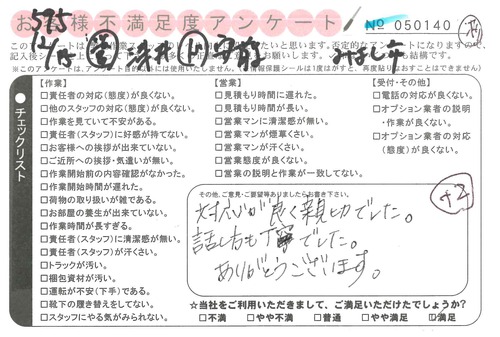 お客様不満足度アンケート
№ 050140
575
12/15
みはし
チェックリスト
【作業】
□責任者の対応(態度)が良くない。
□他のスタッフの対応(態度)が良くない。
□作業を見ていて不安がある。
□責任者(スタッフ)に好感が持てない。
□お客様への挨拶が出来ていない。
□ご近所への挨拶・気遣いが無い。
□作業開始前の内容確認がなかった。
□作業開始時間が遅れた。
□荷物の取り扱いが雑である。
□お部屋の養生が出来ていない。
□作業時間が長すぎる。
□責任者(スタッフ)に清潔感が無い。
□責任者(スタッフ)が汗くさい。
□トラックが汚い。
□梱包資材が汚い。
□運転が不安(下手)である。
□靴下の履き替えをしてない。
□スタッフにやる気がみられない。
【営業】
□見積もり時間に遅れた。
□見積もり時間が長い。
□営業マンに清潔感が無い。
□営業マンが煙草くさい。
□営業マンが汗くさい。
□営業態度が良くない。
□営業の説明と作業が一致してない。
【受付・その他】
□電話の対応が良くない。
□オプション業者の説明
・作業が良くない。
□オプション業者の対応
(態度)が良くない。
その他、ご意見・ご要望等ありましたらお書き下さい。
対応が良く親切でした。
話し方も丁寧でした。
ありがとうございます。
+2
☆当社をご利用いただきまして、ご満足いただけたでしょうか?
□不満 □やや不満 □普通 □やや満足 ☑満足